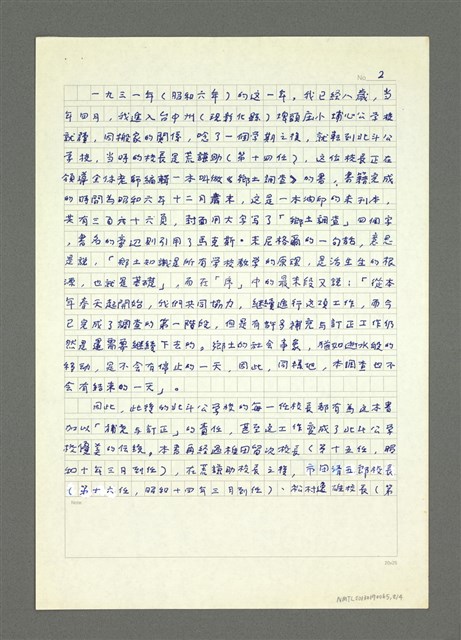 No. 2
一九三一年（昭和六年）的這一年，我已經八歲，當
年四月，我進入台中州（現彰化縣）埤頭庄小埔心公學校
就讀，因搬家的關係，唸了一個學期之後，就轉到北斗公
學校，當時的校長是荒讓助（第十四任），這位校長正在
領導全体老師編輯一本叫做《鄉土調查》的書，書籍完成
的時間為昭和六年十二月廿末，這是一本油印的未刊本，
共有三百六十六頁，封面用大字寫了「鄉土調查」四個字
，書名的旁邊則引用了馬克斯·米尼格爾的一句話，意思
是說，「鄉土知識是所有學校教學的原理，是活生生的根
源，也就是基礎」，而在「序」中的最末段又說：「從本
年春天起開始，我們共同協力，繼續進行這項工作，而今
已完成了調查的第一階段，但是有許多補充與訂正工作仍
然是還需要繼續下去的。鄉土的社會事象，猶如逝水般的
移動，是不會有停止的一天，因此，同樣地，本調查也不
會有結束的一天」。
因此，此後的北斗公學校的每一任校長都有為這本書
加以「補充與訂正」的責任，甚至這工作變成了北斗公學
校優美的任務。本書再經過相田留次校長（第十五任，昭
和十年三月到任），在荒讓助校長之後，市田清五郎校長
（第十六任，昭和十四年三月到任）、松村達雄校長（第
Note
25×20
NMTL20230190065，2/4